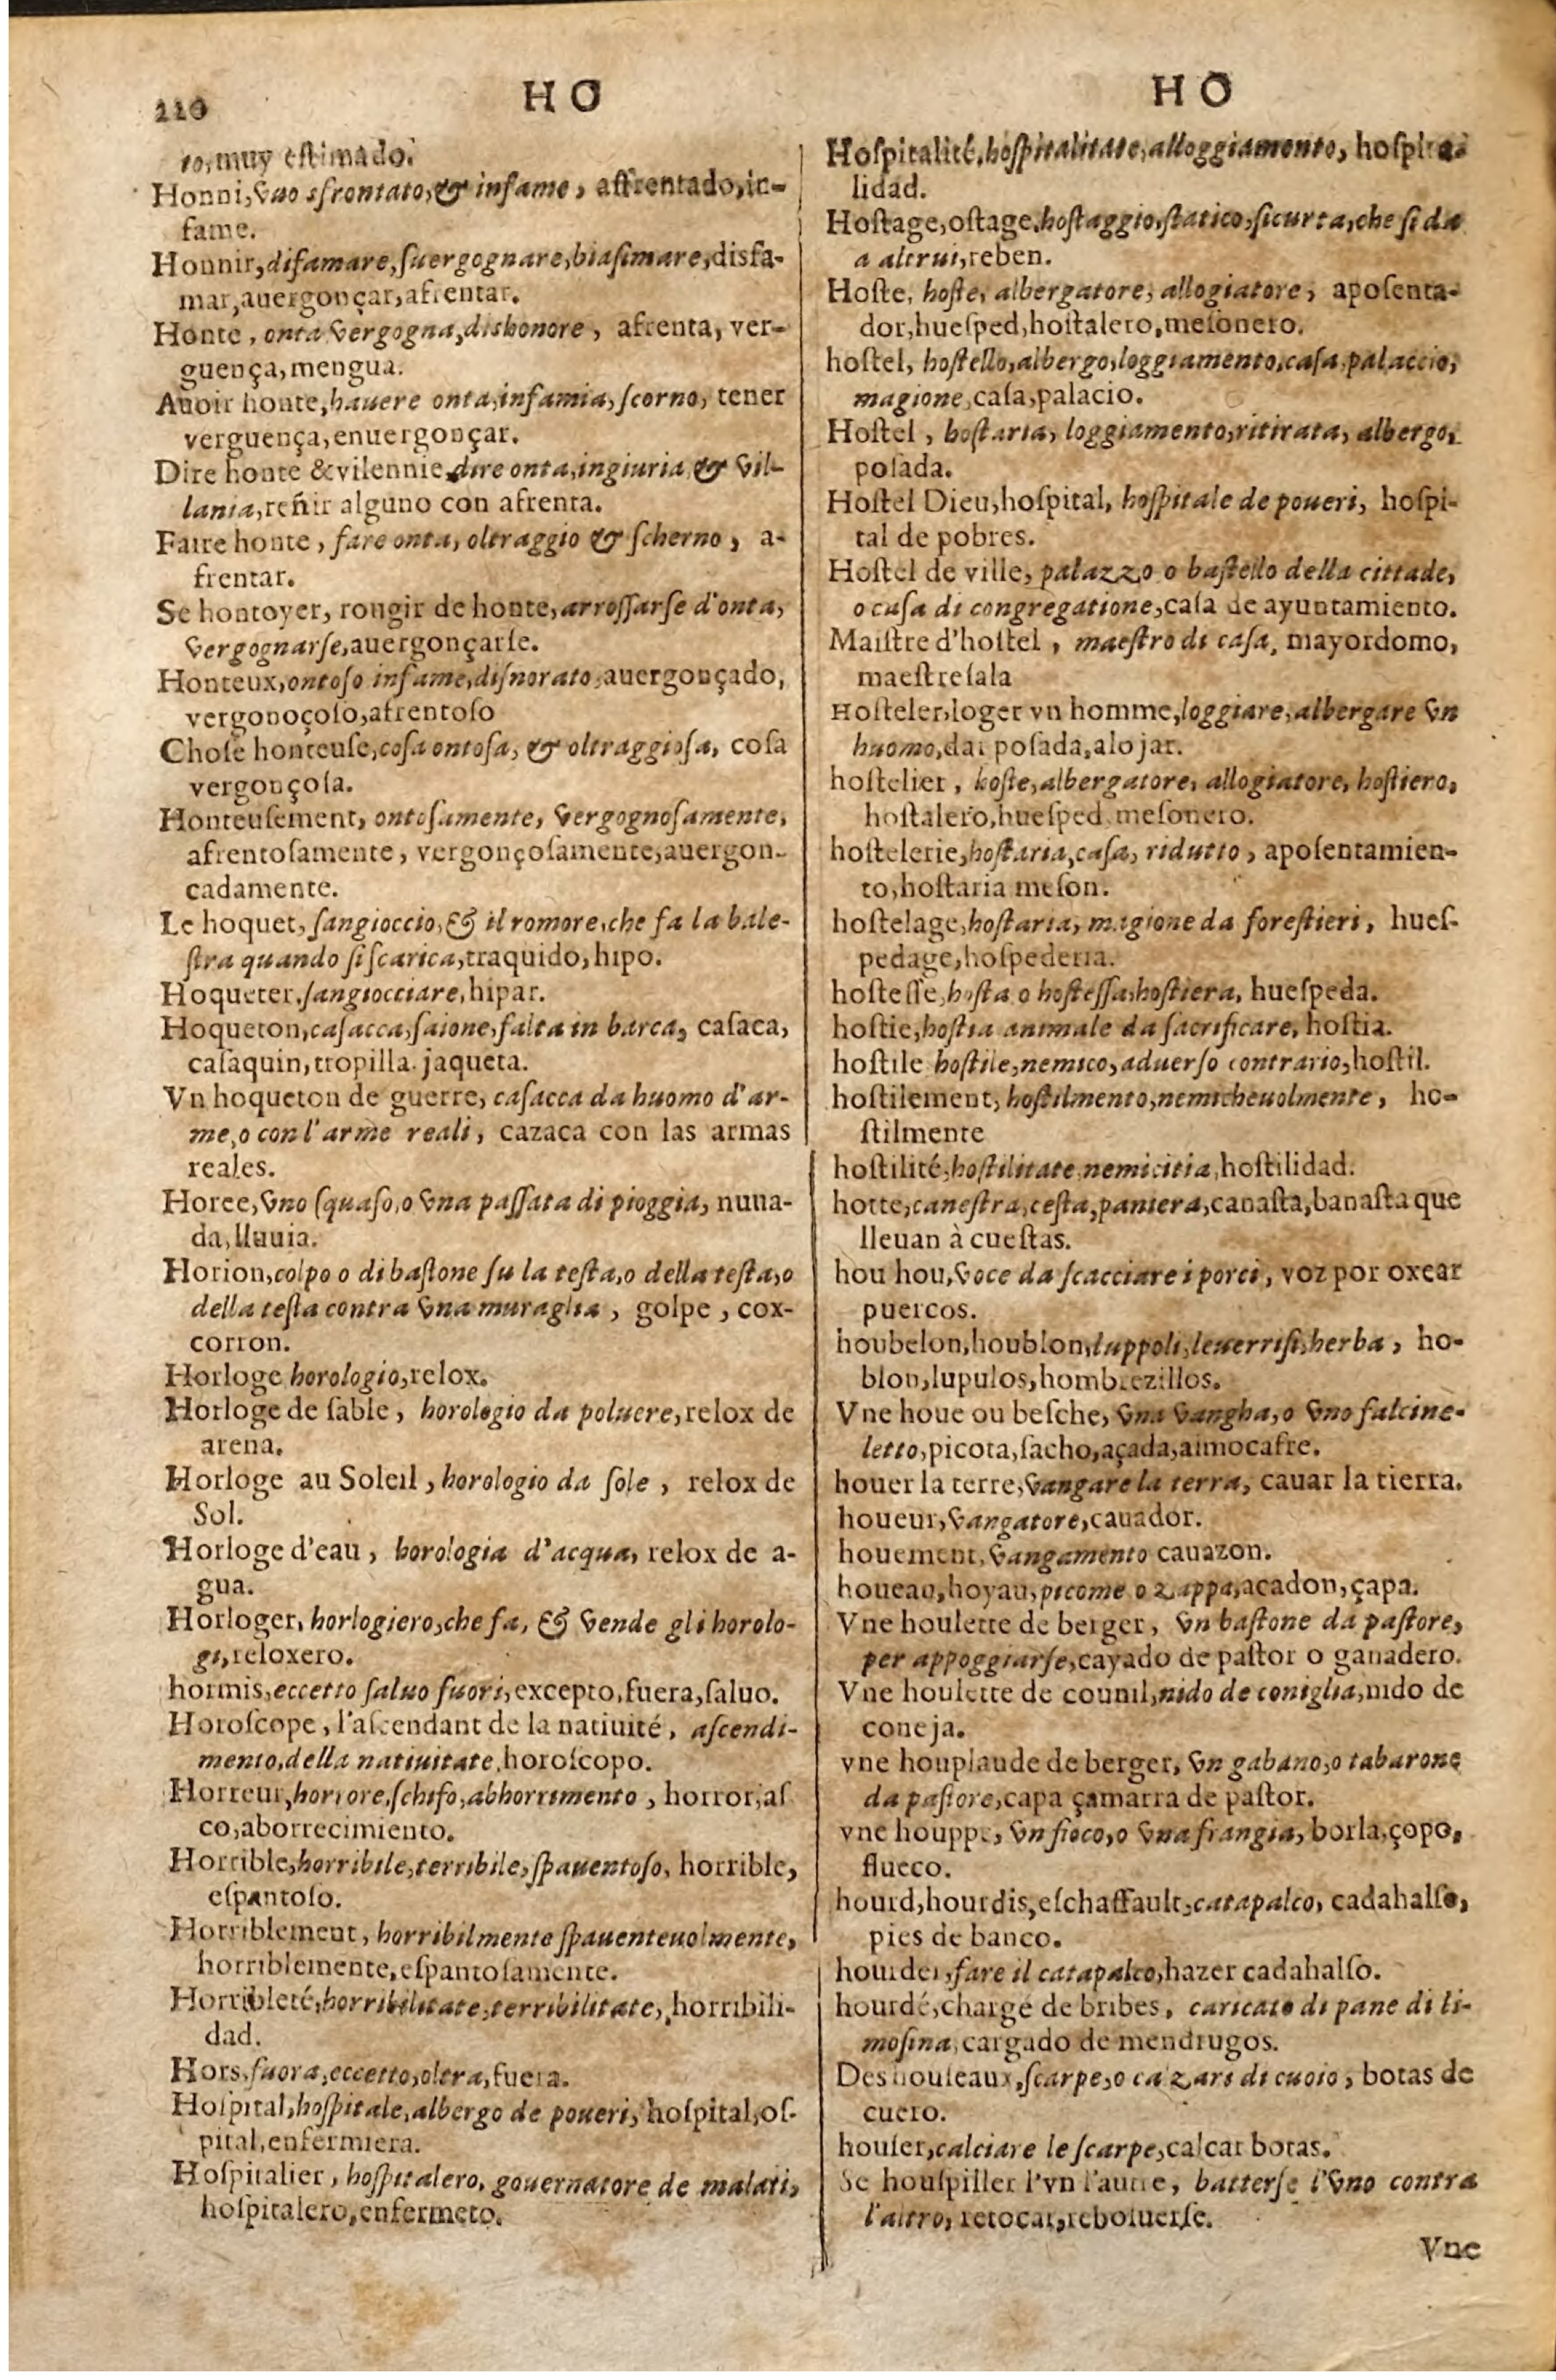 220
HO
HO
to, muy eſtimado.
Honni, vno sfrontato, & infame, affrentado, in-
fame.
Honnir, difamare, ſuergognare, biaſimare, disfa-
mar, auergonçar, afrentar.
Honte, onta vergogna, dishonore, afrenta, ver-
guença, mengua.
Auoir honte, hauere onta, infamia, ſcorno, tener
verguença, enuergonçar.
Dire honte & vilennie, dire onta, ingiuria & vil-
lania, reñir alguno con afrenta.
Faire honte, fare onta, oltraggio & ſcherno, a-
frentar.
Se hontoyer, rougir de honte, arroſſarſe d'onta,
vergognarſe, auergonçarſe.
Honteux, ontoſo infame, diſnorato, auergonçado,
vergonoçoſo, afrentoſo
Choſe honteuſe, coſa ontoſa, & oltraggioſa, coſa
vergonçoſa.
Honteuſement, ontoſamente, vergognoſamente,
afrentoſamente, vergonçoſamente, auergon-
cadamente.
Le hoquet, ſangioccio, & il romore, che fa la bale-
ſtra quando ſi ſcarica, traquido, hipo.
Hoqueter, ſangiocciare, hipar.
Hoqueton, caſacca, ſaione, falta in barca, caſaca,
caſaquin, tropilla. jaqueta.
Vn hoqueton de guerre, caſacca da huomo d'ar-
me, o con l'arme reali, cazaca con las armas
reales.
Horee, vno ſquaſo, o vna paſſata di pioggia, nuua-
da, lluuia.
Horion, colpo o di baſtone ſu la teſta, o della teſta, o
della teſta contra vna muraglia, golpe, cox-
corron.
Horloge horologio, relox.
Horloge de ſable, horologio da poluere, relox de
arena.
Horloge au Soleil, horologio da ſole, relox de
Sol.
Horloge d'eau, horologia d'acqua, relox de a-
gua.
Horloger, horlogiero, che fa, & vende gli horolo-
gi, reloxero.
hormis, eccetto ſaluo fuori, excepto, fuera, ſaluo.
Horoſcope, l'aſcendant de la natiuité, aſcendi-
mento, della natiuitate, horoſcopo.
Horreur, horrore, ſchifo, abhorrimento, horror, aſ
co, aborrecimiento.
Horrible, horribile, terribile, ſpauentoſo, horrible,
eſpantoſo.
Horriblement, horribilmente ſpauenteuolmente,
horriblemente, eſpantoſamente.
Horribleté, horribilitate, terribilitate, horribili-
dad.
Hors, fuora, eccetto, oltra, fuera.
Hoſpital, hoſpitale, albergo de poueri, hoſpital, oſ-
pital, enfermiera.
Hoſpitalier, hoſpitalero, gouernatore de malati,
hoſpitalero, enfermero.
Hoſpitalité, hoſpitalitate, alloggiamento, hoſpita-
lidad.
Hoſtage, oſtage, hoſtaggio, ſtatico, ſicurta, che ſi da
a altrui, reben.
Hoſte, hoſte, albergatore, allogiatore, apoſenta-
dor, hueſped, hoſtalero, meſonero.
hoſtel, hoſtello, albergo, loggiamento, caſa, palaccio,
magione, caſa, palacio.
Hoſtel, hoſtaria, loggiamento, ritirata, albergo,
poſada.
Hoſtel Dieu, hoſpital, hoſpitale de poueri, hoſpi-
tal de pobres.
Hoſtel de ville, palazzo o baſtello della cittade,
o caſa di congregatione, caſa de ayuntamiento.
Maiſtre d'hoſtel, maeſtro di caſa, mayordomo,
maeſtreſala
Hoſteler, loger vn homme, loggiare, albergare vn
huomo, dar poſada, alojar.
hoſtelier, hoſte, albergatore, allogiatore, hoſtiero,
hoſtalero, hueſped, meſonero.
hoſtelerie, hoſtaria, caſa, ridutto, apoſentamien-
to, hoſtaria meſon.
hoſtelage, hoſtaria, magione da foreſtieri, hueſ-
pedage, hoſpederia.
hoſteſſe, hoſta o hoſteſſa, hoſtiera, hueſpeda.
hoſtie, hoſtia animale da ſacrificare, hoſtia.
hoſtile hoſtile, nemico, aduerſo contrario, hoſtil.
hoſtilement, hoſtilmento, nemicheuolmente, ho-
ſtilmente
hoſtilité, hoſtilitate, nemicitia, hoſtilidad.
hotte, caneſtra, ceſta, paniera, canaſta, banaſta que
lleuan à cueſtas.
hou hou, voce da ſcacciare i porci, voz por oxear
puercos.
houbelon, houblon, luppoli, leuerriſi, herba, ho-
blon, lupulos, hombrezillos.
Vne houe ou beſche, vna vangha, o vno falcine-
letto, picota, ſacho, açada, almocafre.
houer la terre, vangare la terra, cauar la tierra.
houeur, vangatore, cauador.
houement, vangamento cauazon.
houeau, hoyau, picome o zappa, acadon, çapa.
Vne houlette de berger, vn baſtone da paſtore,
per appoggiarſe, cayado de paſtor o ganadero.
Vne houlette de counil, nido de coniglia, nido de
coneja.
vne houplaude de berger, vn gabano, o tabarone
da paſtore, capa çamarra de paſtor.
vne houppe, vn fioco, o vna frangia, borla, çopo,
flueco.
hourd, hourdis, eſchaffault, catapalco, cadahalſo,
pies de banco.
hourder, fare il catapalco, hazer cadahalſo.
hourdé, chargé de bribes, caricato di pane di li-
moſina, cargado de mendrugos.
Des houſeaux, ſcarpe, o calzari di cuoio, botas de
cuero.
houſer, calciare le ſcarpe, calçar botas.
Se houſpiller l'vn l'autre, batterſe l'vno contra
l'altro, retocar, reboluerſe.
Vne